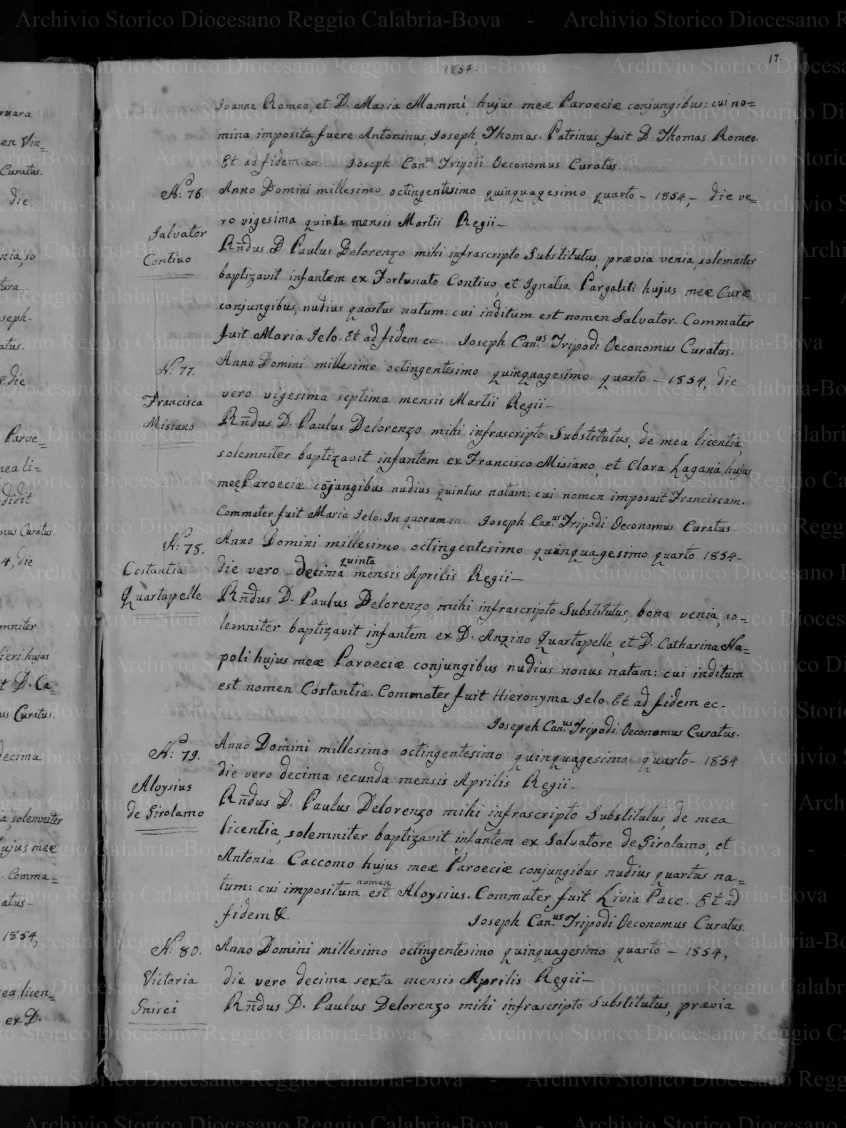 1854.
17.
Joanne Romeo, et D. Maria Mammì, hujus meæ Paroeciæ conjungibus: cui no=
mina imposita fuere Antoninus, Joseph, Thomas. Patrinus fuit D. Thomas Romeo.
Et ad fidem ec. Joseph Can.us Tripodi Oeconomus Curatus.
N.° 76.
Salvator
Contivo
Anno Domini millesimo octingentesimo quinquagesimo quarto - 1854 -, die ve=
ro vigesima quinta mensis Martii Regii -
Rñdus D. Paulus Delorenzo mihi infrascripto Substitutus, prævia venia, solemniter
baptizavit infantem ex Fortunato Contivo, et Ignatia Pargaliti hujus meæ Curæ
conjungibus, nudius quartus natum: cui inditum est nomen Salvator. Commater
fuit Maria Ielo. Et ad fidem ec Joseph Can.us Tripodi Oeconomus Curatus.
N.° 77.
Francisca
Misiano
Anno Domini millesimo octingentesimo quinquagesimo quarto - 1854, die
vero vigesima septima mensis Martii Regii -
Rñdus D. Paulus Delorenzo mihi infrascripto Substitutus, de mea licentia
solemniter baptizavit infantem ex Francisco Misiano, et Clara Laganà hujus
meæ Paroeciæ cõjungibus nudius quintus natam: cui nomen imposuit Franciscam.
Commater fuit Maria Ielo. In quorum ec Joseph Can.us Tripodi Oeconomus Curatus
N.° 75.
Costantia
Quartapelle
Anno Domini millesimo octingentesimo quinquagesimo quarto 1854-
die vero decima quinta mensis Aprilis Regii -
Rñdus D. Paulus Delorenzo mihi infrascripto Substitutus, bona venia, so=
lemniter baptizavit infantem ex D. Anzino Quartapelle, et D. Catharina Na=
poli hujus meæ Paroeciæ conjungibus nudius nonus natam: cui inditum
est nomen Costantia. Commater fuit Hieronyma Ielo. Et ad fidem ec-
Josepeh Can.us Tripodi Oeconomus Curatus.
N.° 79.
Aloysius
de Girolamo
Anno Domini millesimo octingentesimo quinquagesimo quarto - 1854
die vero decima secunda mensis Aprilis Regii -
Rñdus D. Paulus Delorenzo mihi infrascripto Substitutus, de mea
licentia, solemniter baptizavit infantem ex Salvatore de Girolamo, et
Antonia Caccomo hujus meæ Paroeciæ conjungibus nudius quartus na=
tum: cui impositum nomen est Aloysius. Commater fuit Livia Pace. Et ad
fidem &. Joseph Can.us Tripodi Oeconomus Curatus.
N.° 80.
Victoria
Gnisci
Anno Domini millesimo octingentesimo quinquagesimo quarto - 1854,
die vero decima sexta mensis Aprilis Regii -
Rñdus D. Paulus Delorenzo mihi infrascripto Substitutus, prævia